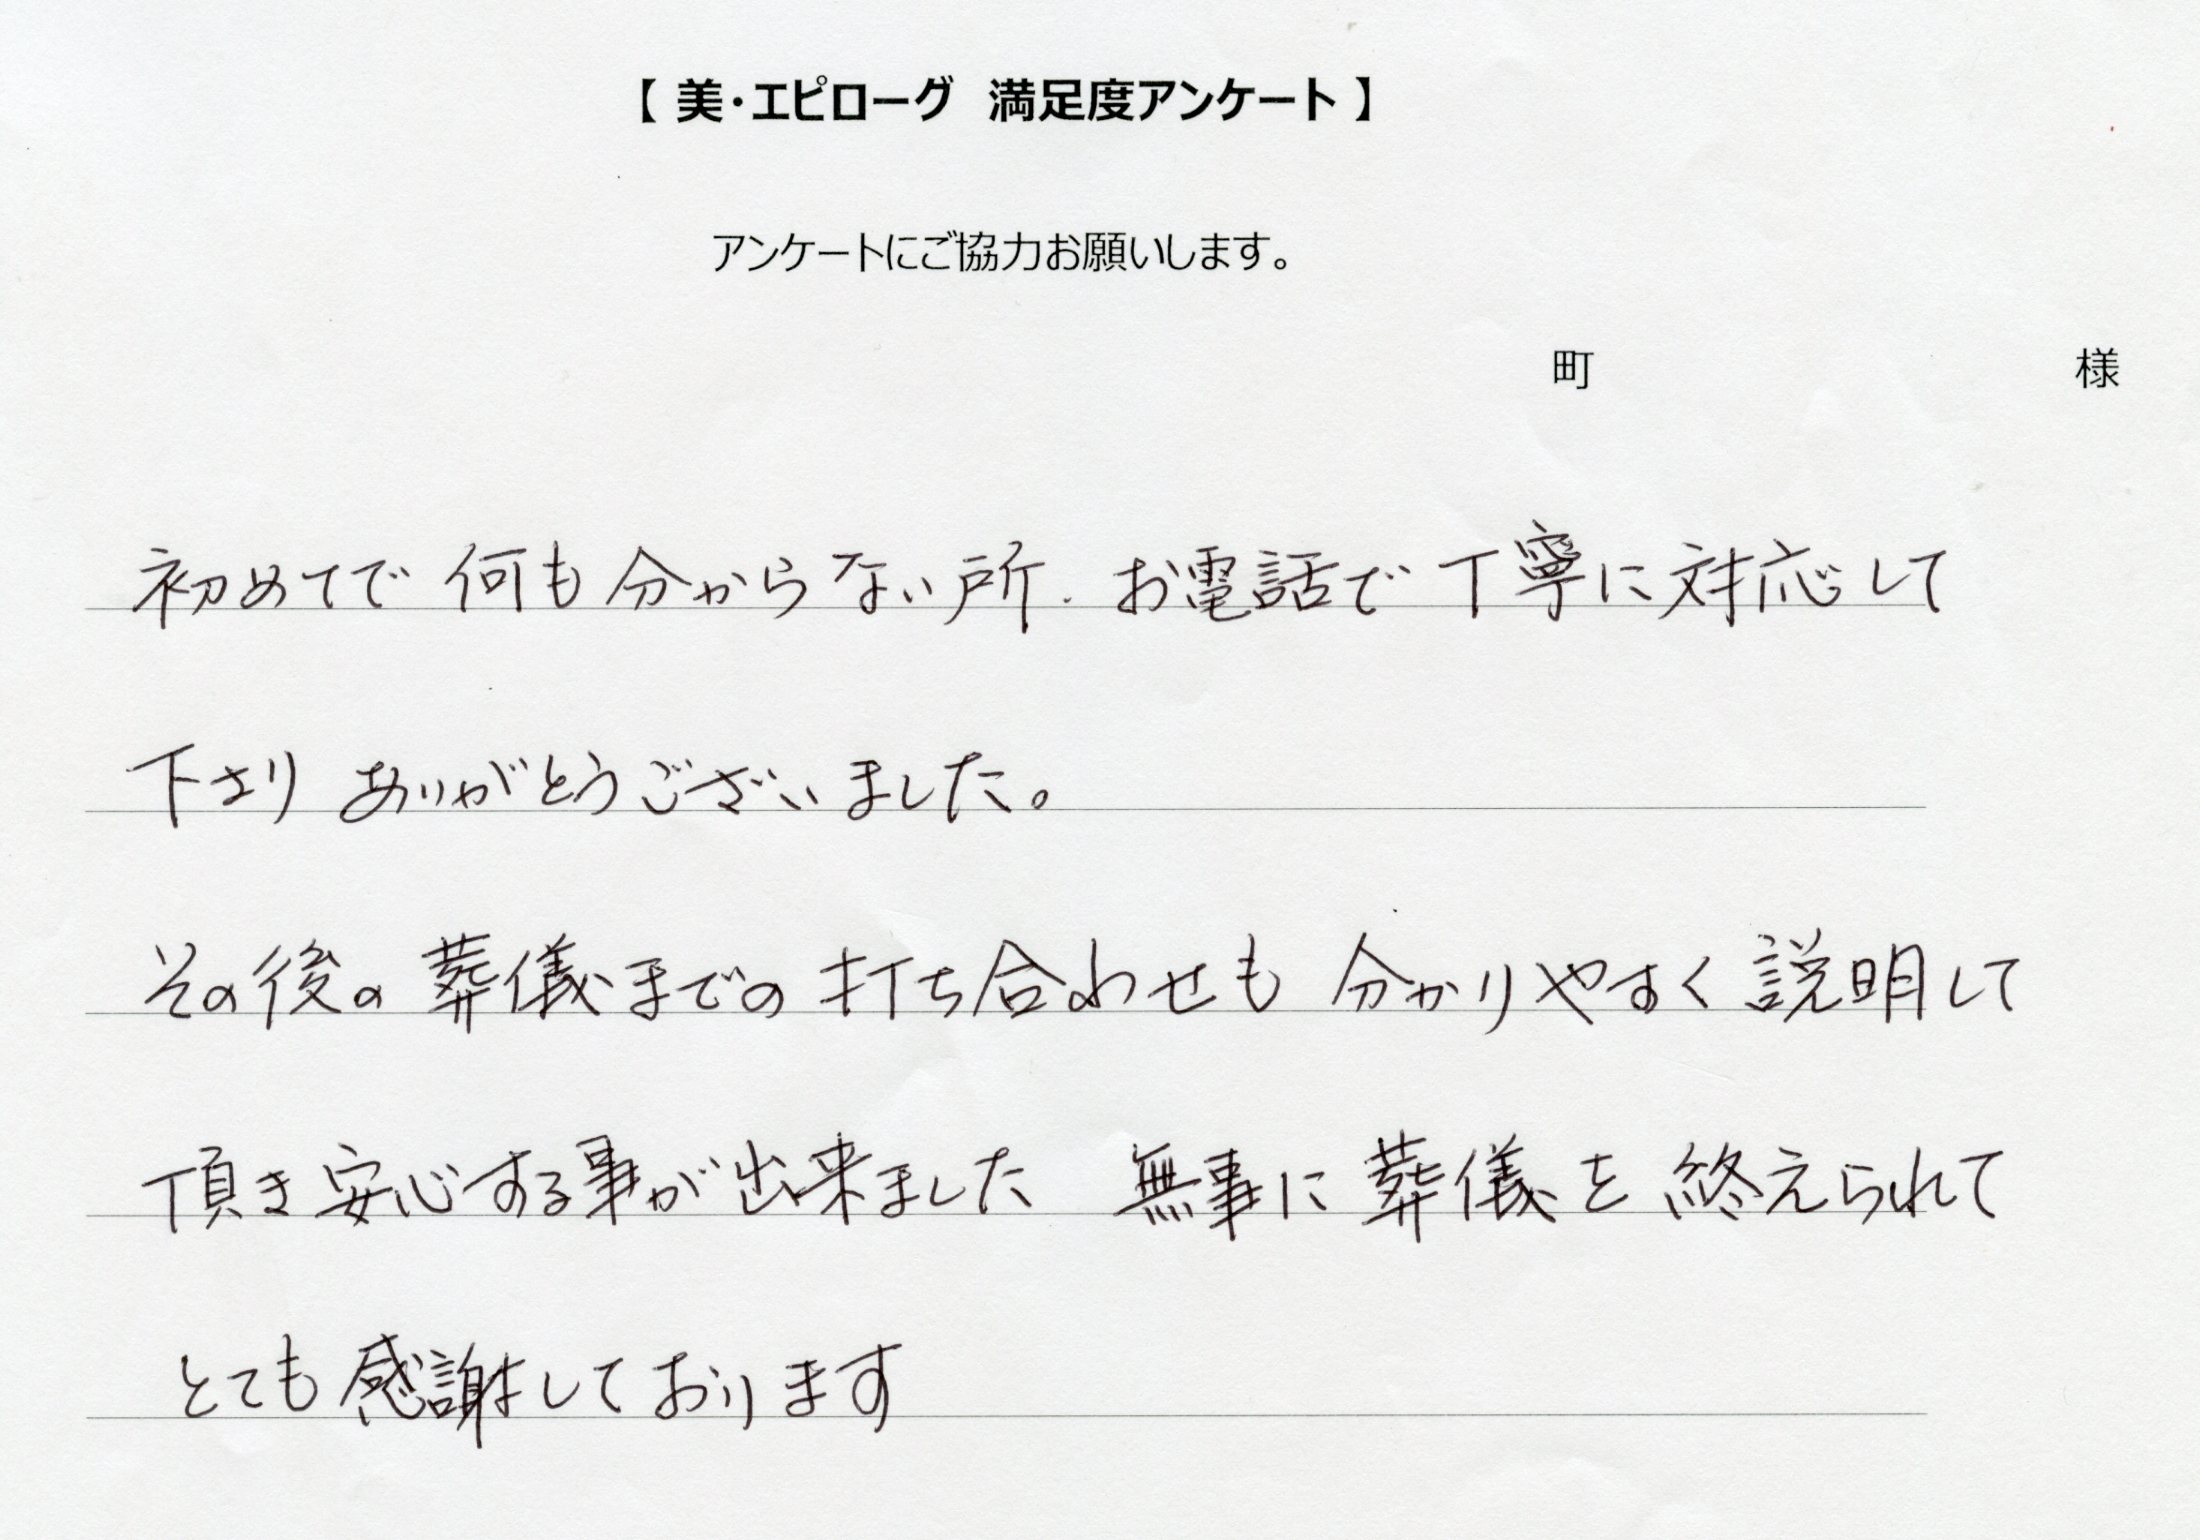 【 美・エピローグ　満足度アンケート 】
アンケートにご協力お願いします。
町　様
初めてで 何も分からない所、お電話で丁寧に対応して
下さり ありがとうございました。
その後の葬儀までの打ち合わせも 分かりやすく説明して
頂き安心する事が出来ました　無事に葬儀を終えられて
とても感謝しております